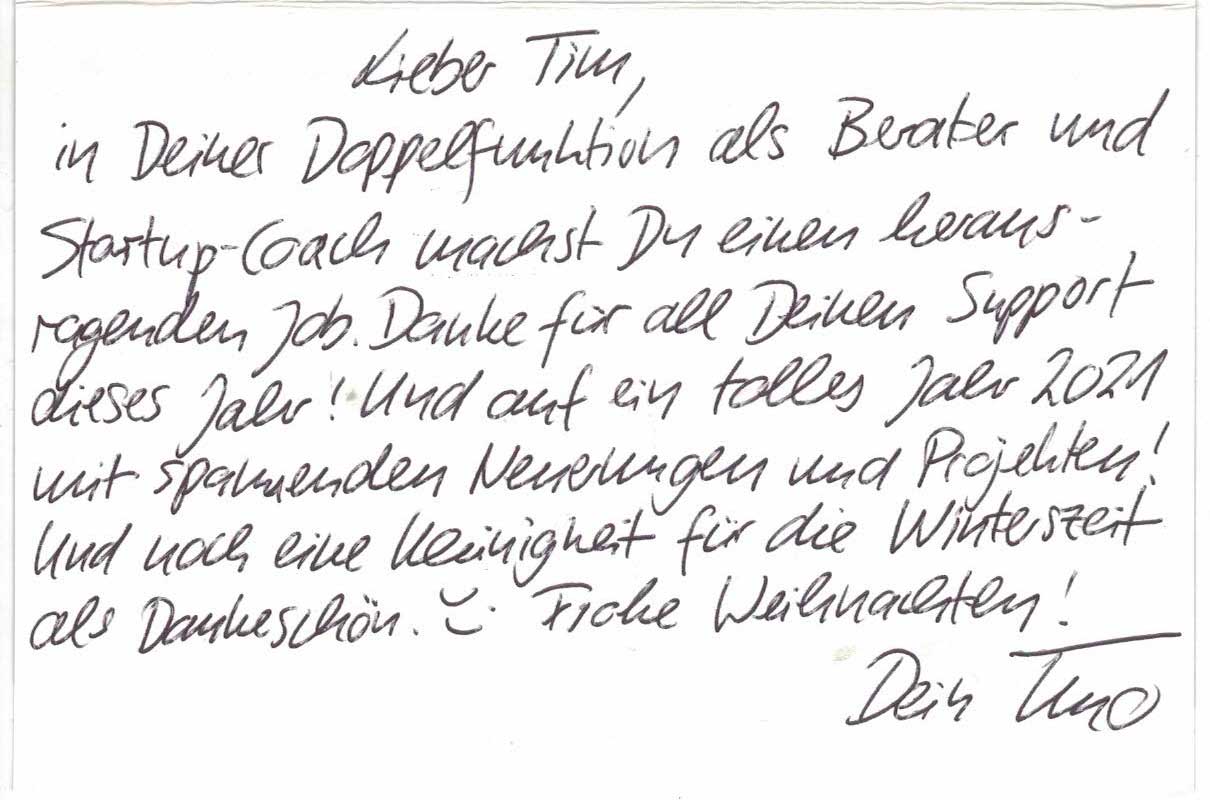 Lieber Tim,
in Deiner Doppelfunktion als Berater und
Startup-Coach machst Du einen heraus-
ragenden Job. Danke für all Deinen Support
dieses Jahr! Und auf ein tolles Jahr 2021
mit spannenden Neuerungen und Projekten!
Und noch eine Kleinigkeit für die Winterszeit
als Dankeschön. Frohe Weihnachten!
Dein Timo